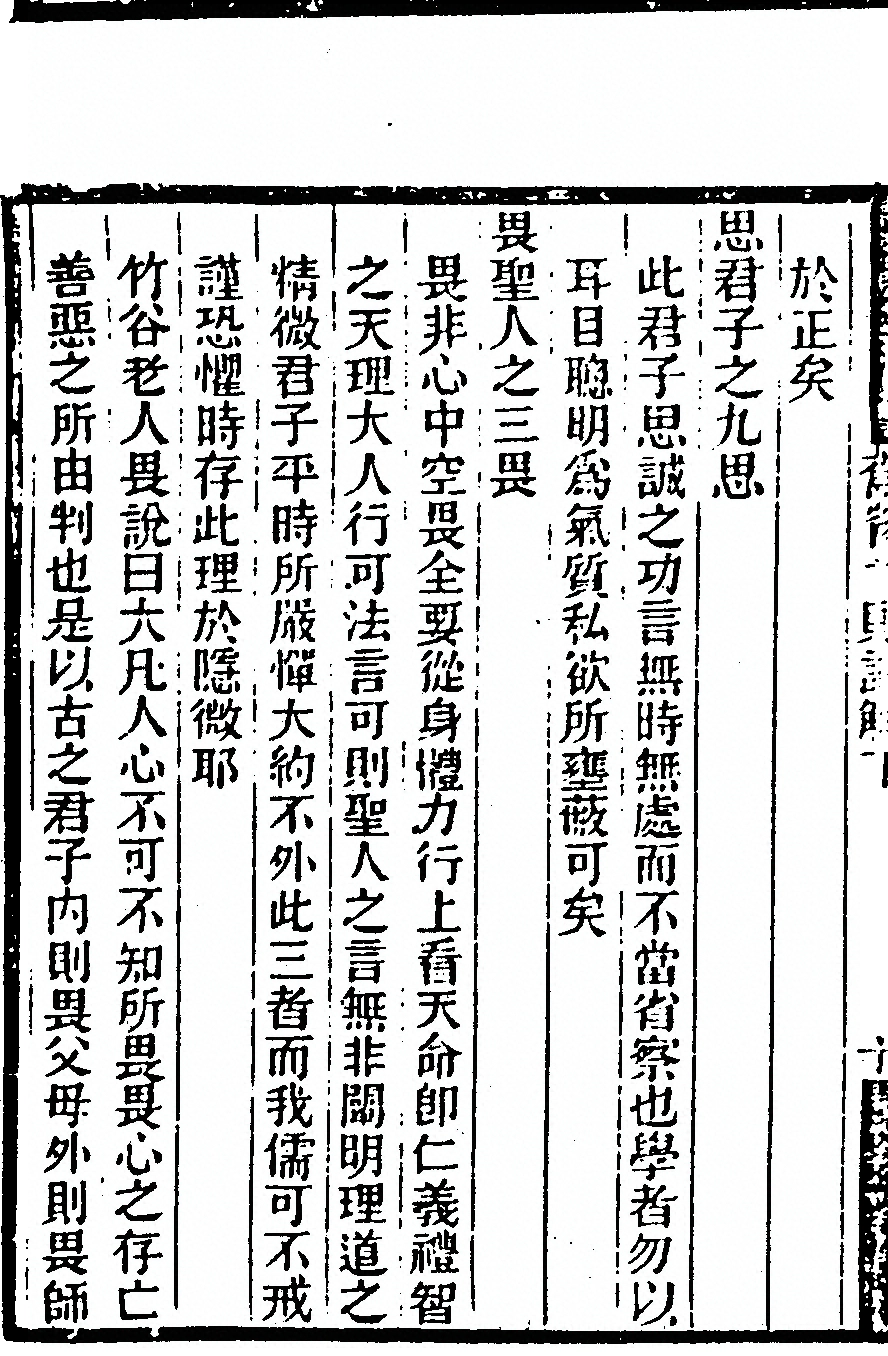 於正矣
思君子之九思
此君子思誠之功言無時無處而不當省察也學者勿以
耳目聰明爲氣質私欲所壅蔽可矣
畏聖人之三畏
畏非心中空畏全要從身體力行上看天命卽仁義禮智
之天理大人行可法言可則聖人之言無非闡明理道之
精微君子平時所嚴憚大約不外此三者而我儒可不戒
謹恐懼時存此理於隱微耶
竹谷老人畏說曰大凡人心不可不知所畏畏心之存亡
善惡之所由判也是以古之君子内則畏父母外則畏師